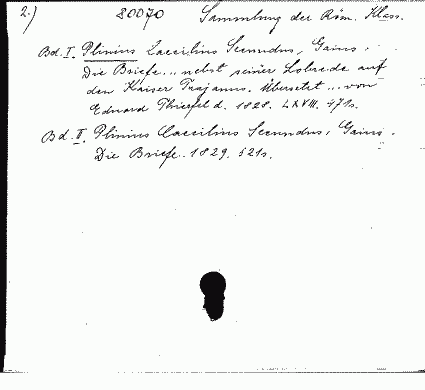 2.) 80070 Sammlung der Röm. Klass.
Bd. I. Plinius Caecilius Secundus, Gaius.
Die Briefe... nebst seiner Lobrede auf
den Kaiser Trajanus. Übersetzt... von
Eduard Thierfeld. 1828. LXVIII. 471s.
Bd. II. Plinius Caecilius Secundus, Gaius.
Die Briefe. 1829. 521s.